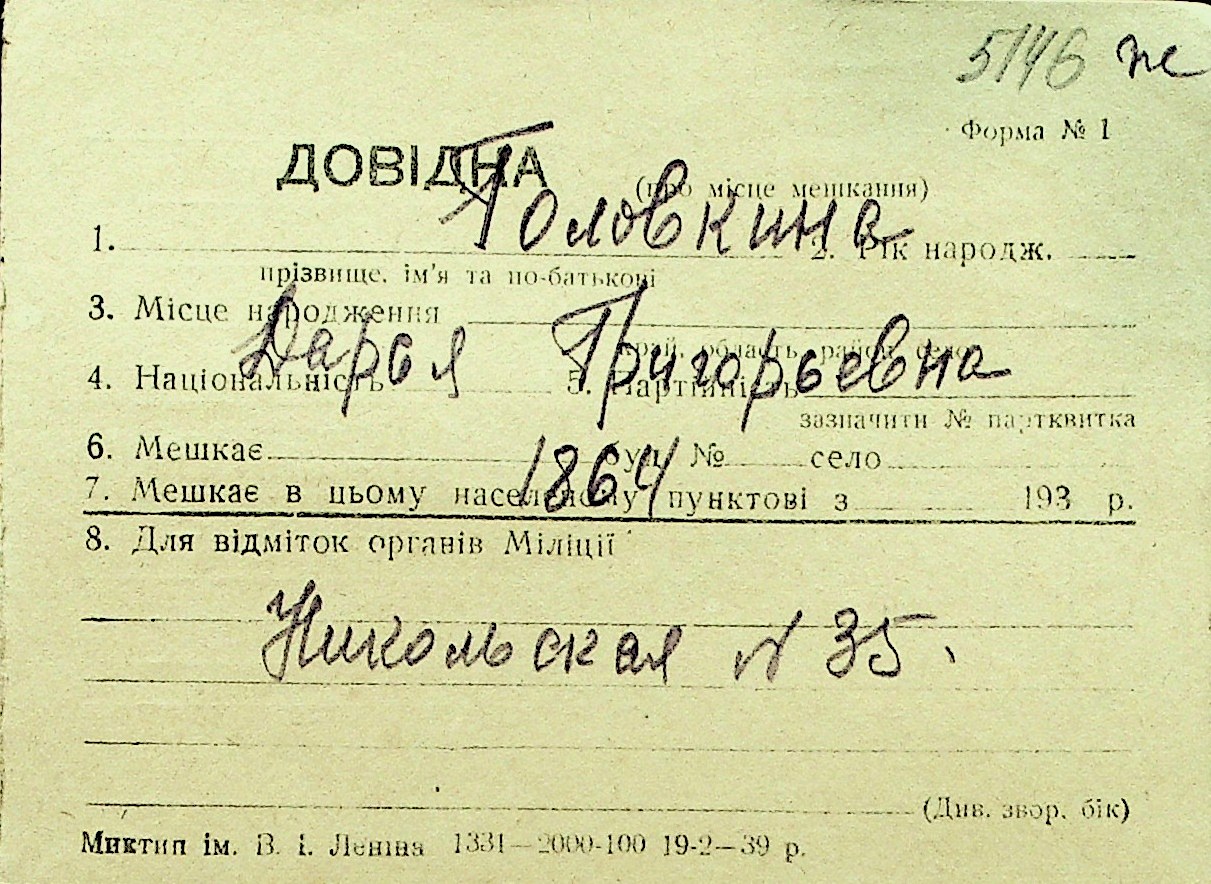 5146 ж
Форма № 1
ДОВІДНА (про місце мешкання)
Головкина
1. 2. Рік народж.
прізвище, ім'я та по-батькові
3. Місце народження
Дарья Григорьевна
край, область, район, село
4. Національність 5. Партійність
зазначити № партквитка
6. Мешкає буд. № село
1864
7. Мешкає в цьому населеному пунктові з 193 р.
8. Для відміток органів Міліції
Никольская № 35.
(Див. звор. бік)
Миктип ім. В. і. Леніна 1331—2000-100 19-2—39 р.